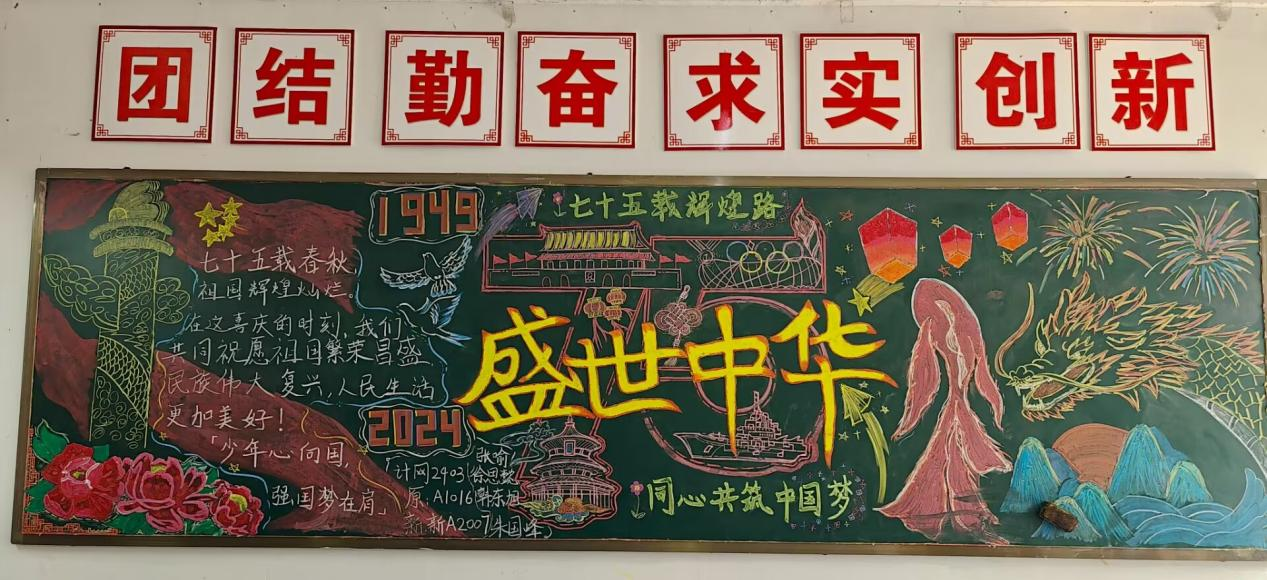 团结 勤奋 求实 创新
1949
七十五载辉煌路
七十五载春秋
祖国辉煌灿烂
在这喜庆的时刻,我们
共同祝愿祖国繁荣昌盛
民族伟大复兴,人民生活
更加美好!
「少年心向国,
强国梦在肩」
2024
盛世中华
同心共筑中国梦
计网2403
原:A1016
新A2007